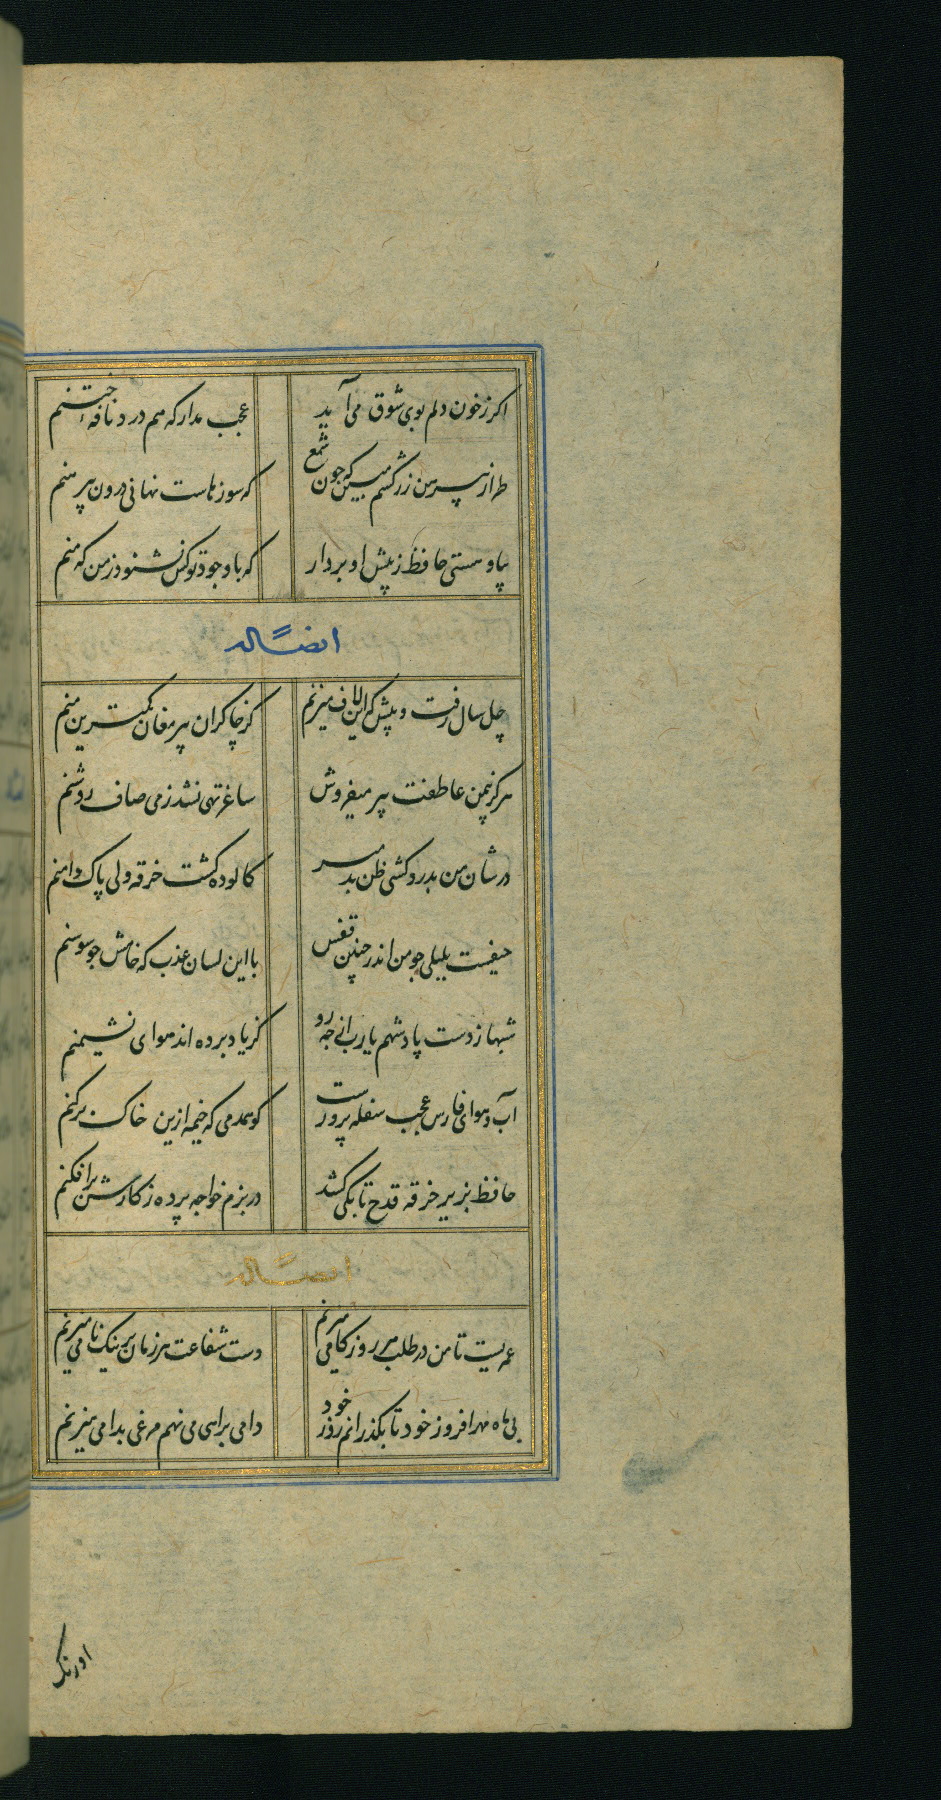 اکر زخون دلم بوی شوق می آید عجب مدار که هم درد نافه ختنم
طراز پیرهن زرکشم مبین که جون شمع که سوزهاست نهانی درون پیرهنم
بیا و هستی حافظ ز پیش او بردار که با وجود تو کس نشنود ز من که منم
ایضاً له
چل سال رفت و بیش که این لاف میزنم کز چاکران پیر مغان کمترین منم
هرکز بیمن عاطفت پیر میفروش ساغر تهی نشد ز می صاف روشنم
در شان من بدرد کشی ظن بد مبر کالوده کشت خرقه ولی پاک دامنم
حیفست بلبلی جو من اندر جنین قفس با این لسان عذب که خامش جو سوسنم
شهباز دست پادشهم یا رب از جه رو کز یاد برده اند هوای نشیمنم
آب و هوای فارس عجب سفله پرورست کو همدمی که خیمه ازین خاک برکنم
حافظ بزیر خرقه قدح تا بکی کشد در بزم خواجه پرده ز کارش برافکنم
ایضاً له
عمریست تا من در طلب هر روز کامی میزنم دست شفاعت هر زمان بر نیک نامی میزنم
بی ماه مهر افروز خود تا بکذرانم روز خود دامی براهی می نهم مرغی بدامی میزنم
اورنک